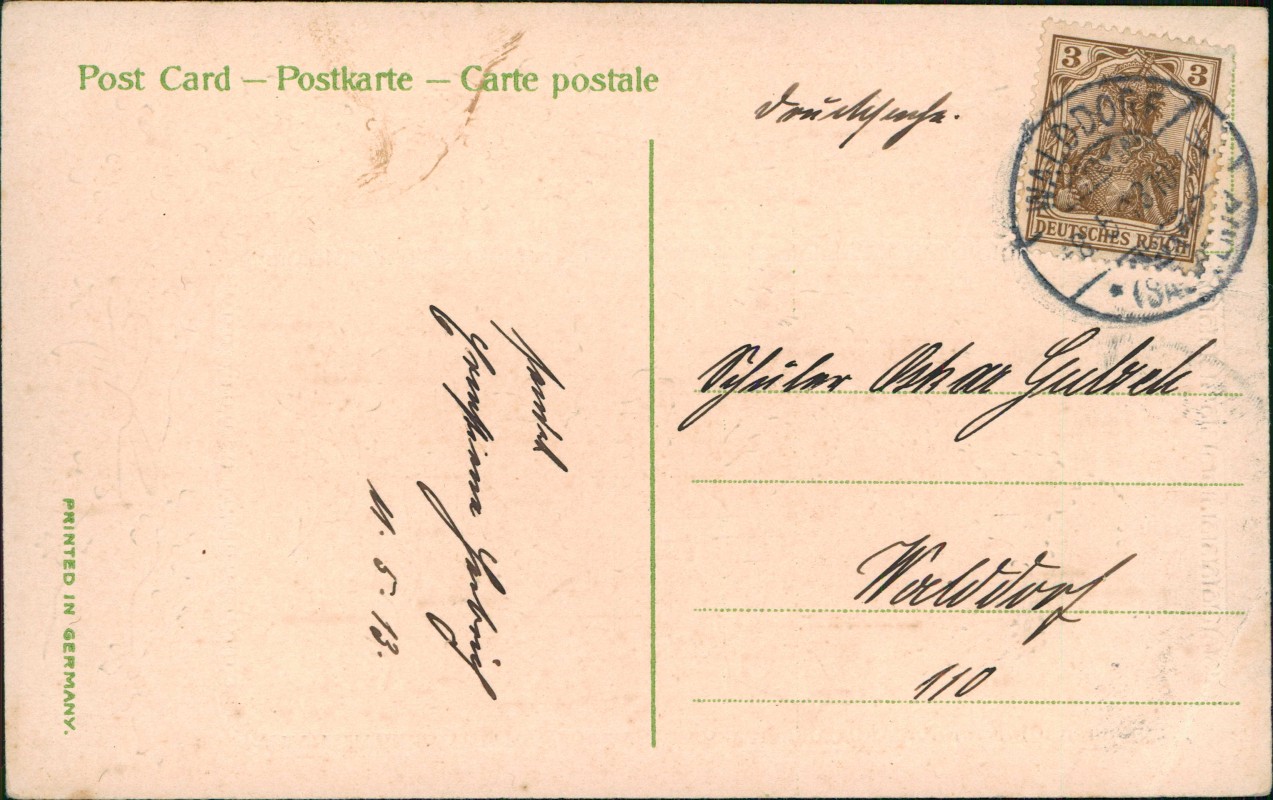 Post Card – Postkarte – Carte postale
Drucksache.
3 3
DEUTSCHES REICH
WALDDORF
Schüler Oskar Gulich
Walddorf
110
sendet
Ludwig
11. 5. 13.
PRINTED IN GERMANY.